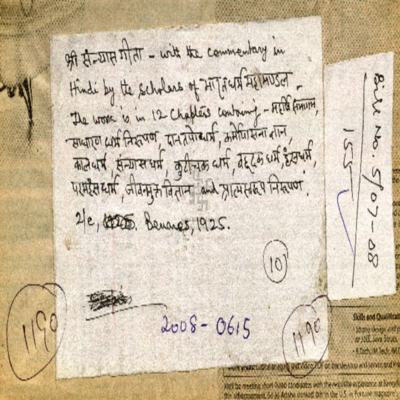 श्री संन्यास गीता - with the commentary in
Hindi by the scholars of भारतधर्म महामण्डल
The work is in 12 Chapters containing - महर्षि समागम,
साधारण धर्म निरूपण, दानतपोधर्म, कर्मोपासना ज्ञान,
काल धर्म, संन्यास धर्म, कुटीचक धर्म, बहूदक धर्म, हंसधर्म,
परमहंस धर्म, जीवनमुक्त विज्ञान and आत्मस्वरूप निरूपण.
2/e, Benares, 1925.
10
2008-0615
1190
1190
Bill No. 5/07-08
155
Skills and Qualificat